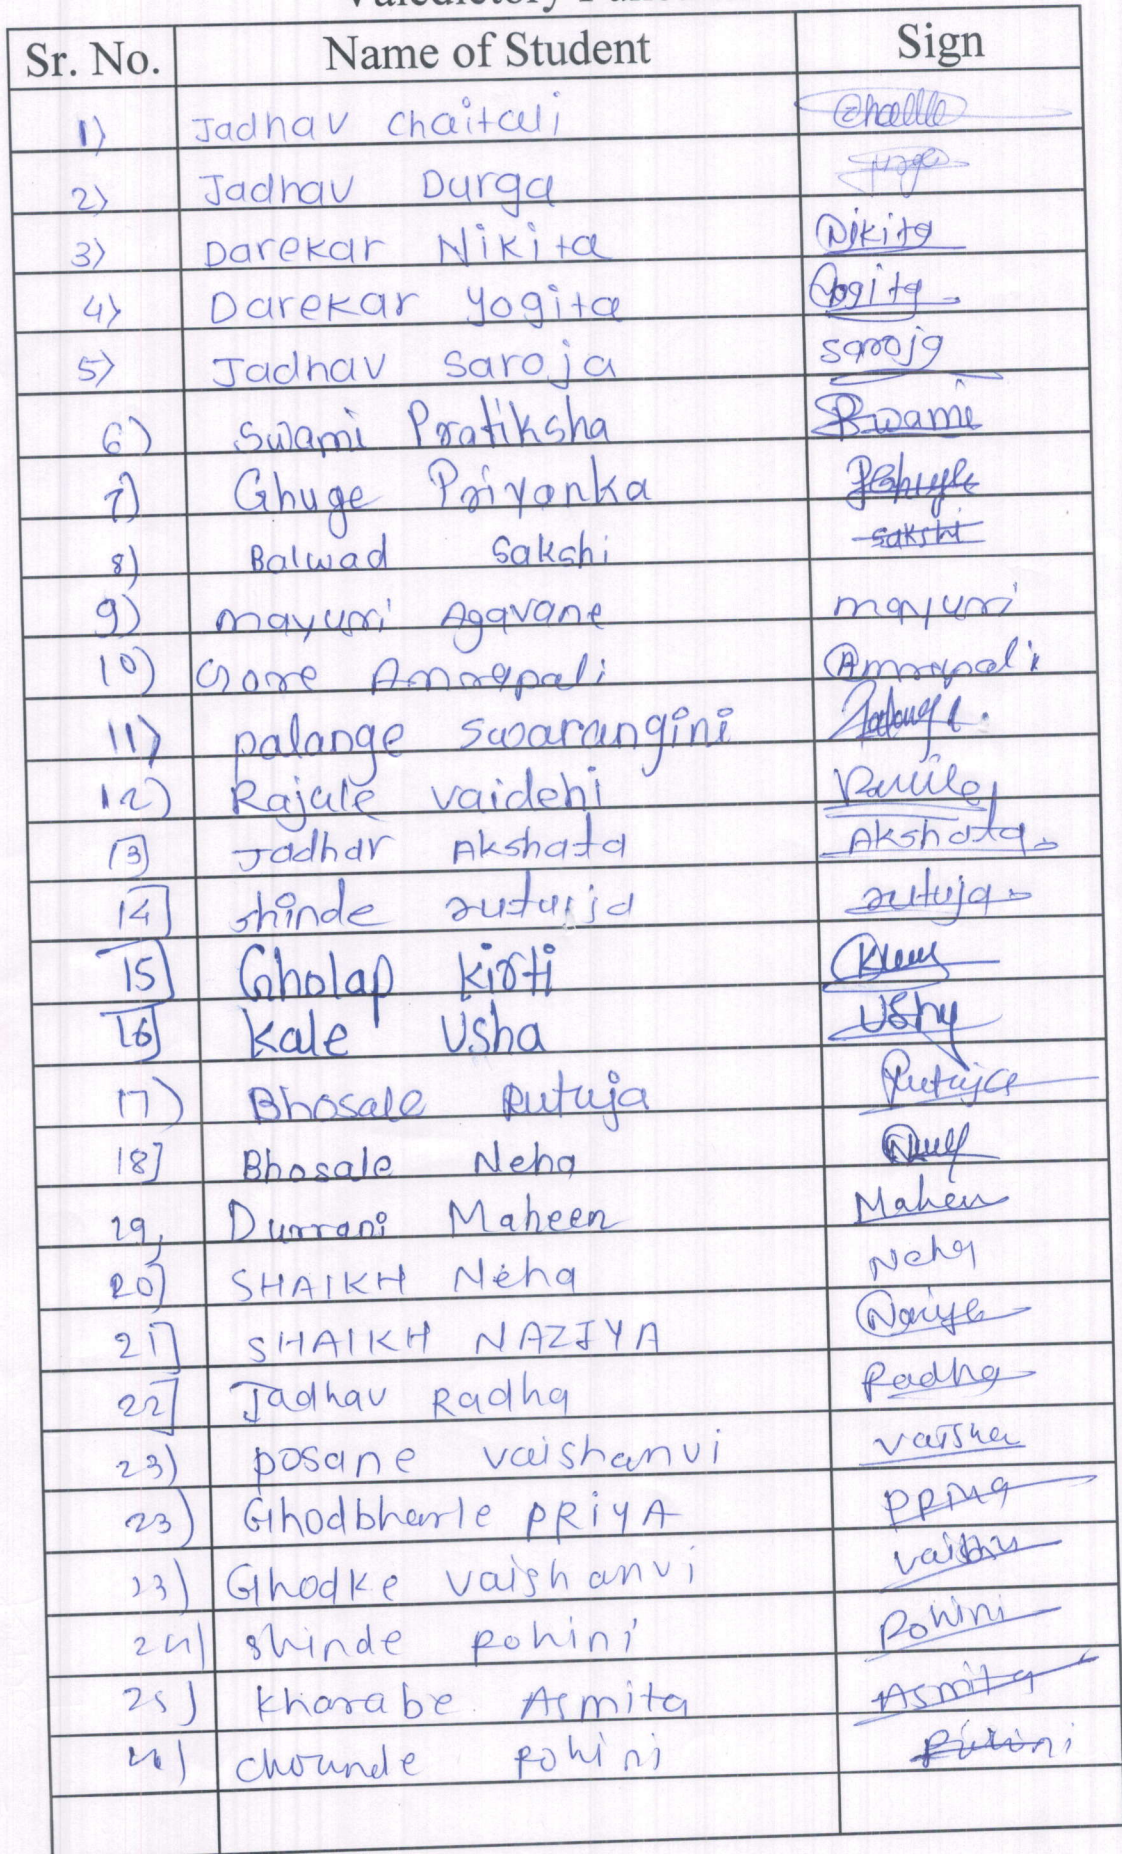 Valedictory
Sr. No. Name of Student Sign
1) Jadhav Chaitali
2) Jadhav Durga Durga
3) Darekar Nikita Nikita
4) Darekar Yogita Yogita
5) Jadhav Saroja saroja
6) Swami Pratiksha PSwami
7) Ghuge Priyanka PGhuge
8) Balwad Sakshi sakshi
9) mayuri Agavane mayuri
10) Gore Amrapali Amrapali
11) palange swarangini
12) Rajale vaidehi
13] Jadhav Akshata Akshata
14] shinde rutuja rutuja
15] Gholap kirti
16] kale Usha Usha
17) Bhosale Rutuja Rutuja
18] Bhosale Neha
19, Durrani Maheen Maheen
20) SHAIKH Neha Neha
21] SHAIKH NAZIYA
22] Jadhav Radha Radha
23) posane vaishanvi vaishu
23) Ghodbharle PRiYA
23) Ghodke vaishanvi vaishu
24) shinde Rohini Rohini
25) kharabe Asmita Asmita
chounde Rohini